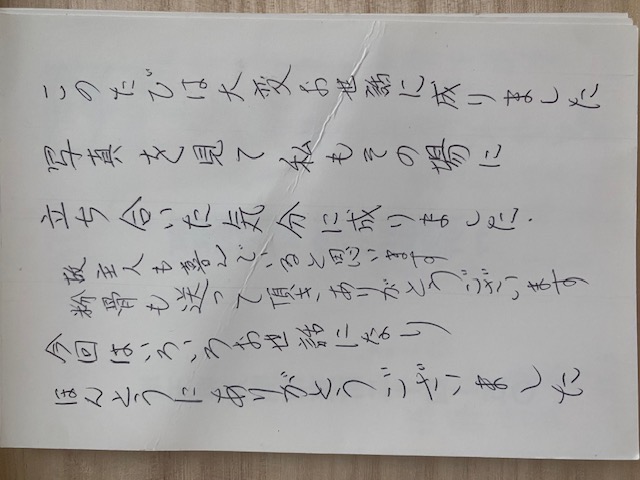 このたびは大変お世話に成りました
写真を見て私もその場に
立ち合いた気分に成りました.
故主人も喜んでいると思います
粉骨も送って頂きありがとうございます
今回はいろいろお世話になり
ほんとうにありがとうございました